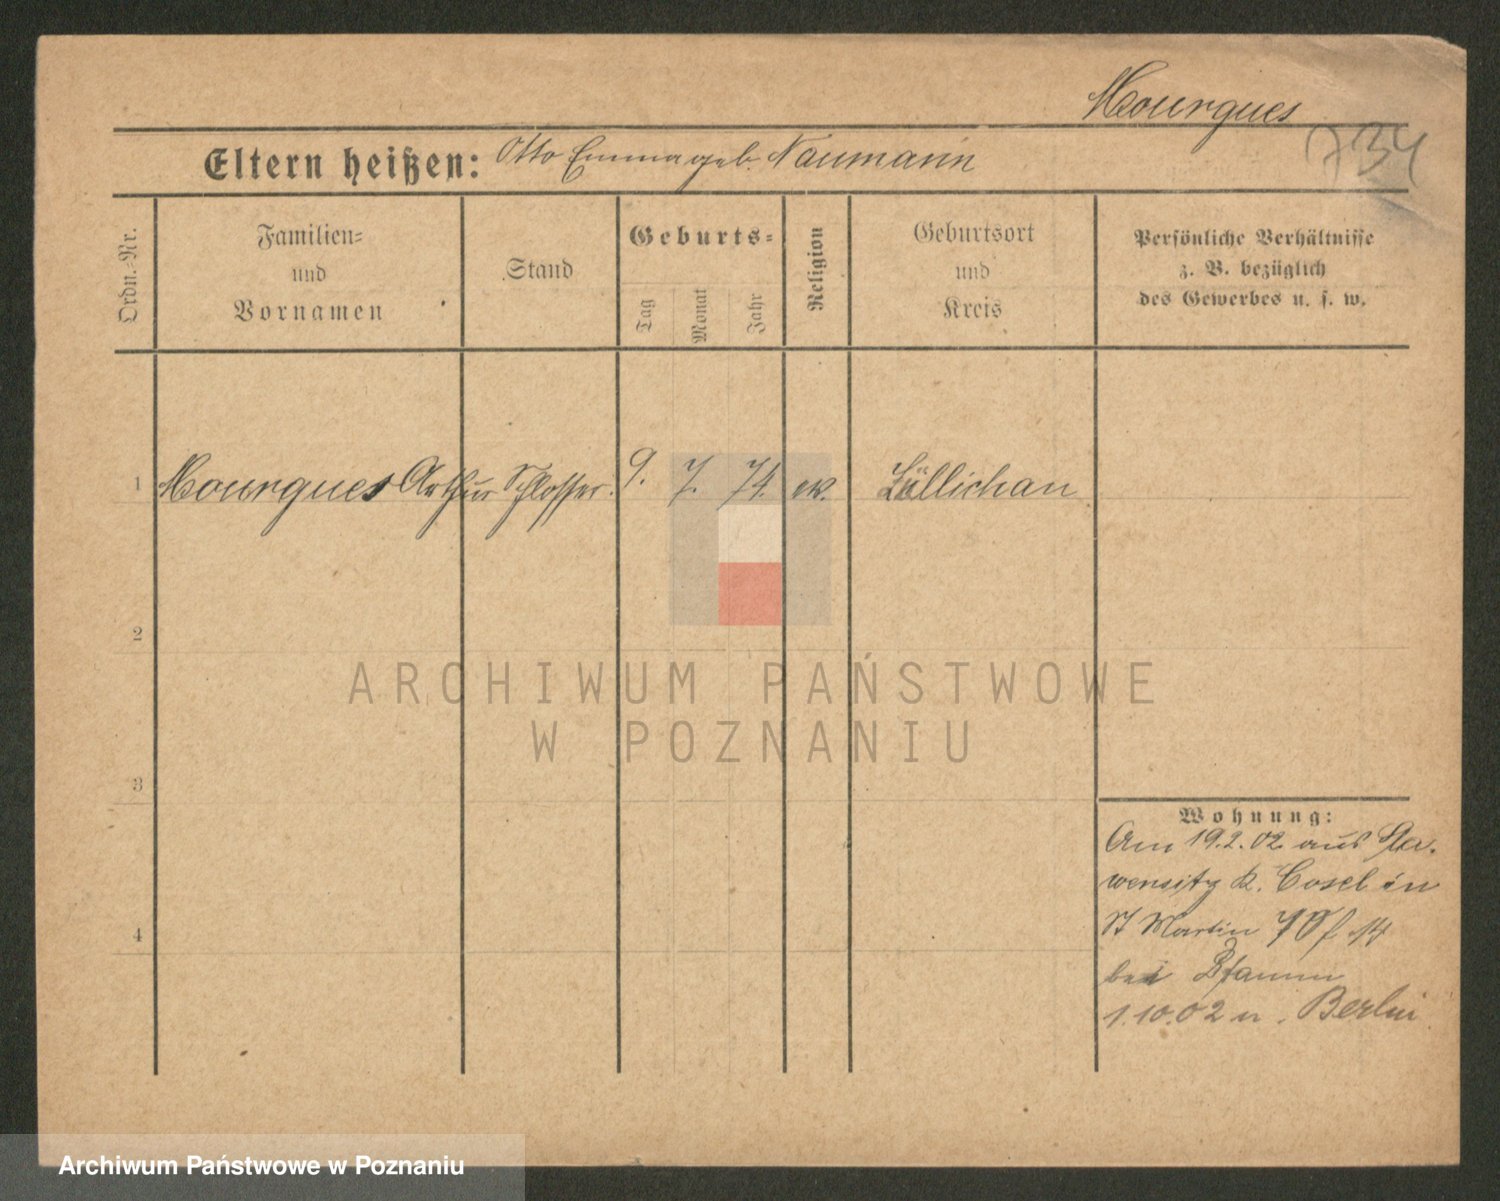 Mourgues
734
Eltern heißen: Otto Emma geb. Naumann
Ordn.-Nr.
Familien-
und
Vornamen
Stand
Geburts-
Tag
Monat
Jahr
Religion
Geburtsort
und
Kreis
Persönliche Verhältnisse
z. B. bezüglich
des Gewerbes u. s. w.
1 Mourgues Arthur Schlosser. 9. 7. 74. ev. Züllichau
2
3
4
Wohnung:
Am 19.2.02. aus Sla-
wensitz K. Cosel in
St Martin
bei
1.10.02 n. Berlin
ARCHIWUM PAŃSTWOWE
W POZNANIU
Archiwum Państwowe w Poznaniu